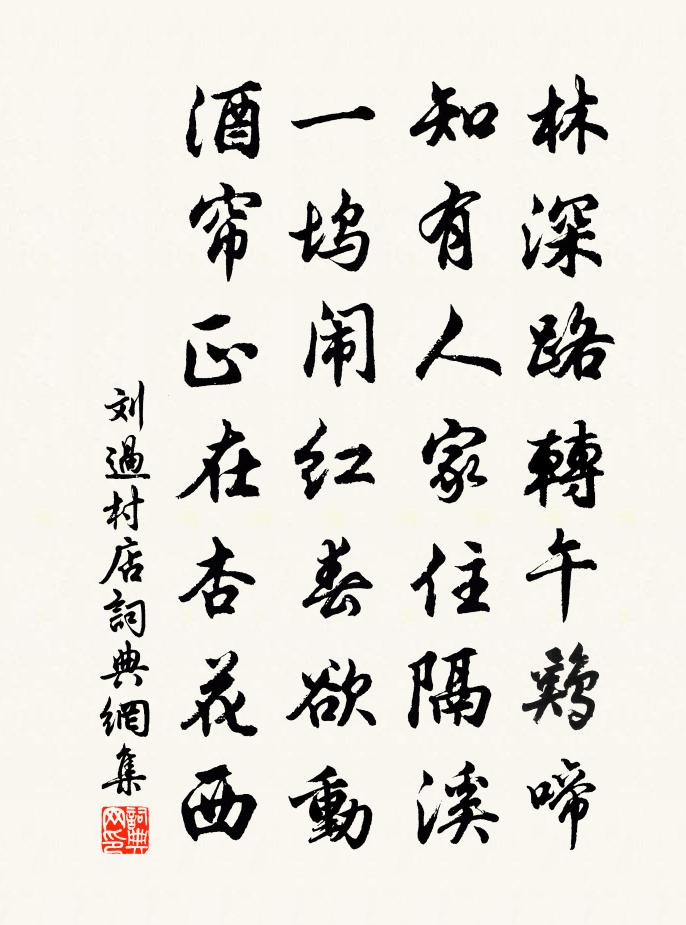 林深路轉午鷄啼
知有人家住隔溪
一坞闹红春欲動
酒帘正在杏花西
刘過村店詞典網集
詞典网印